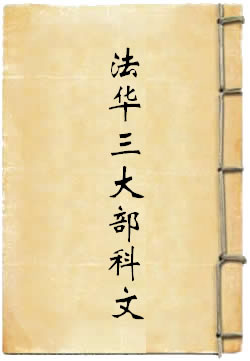 法华三大部科文